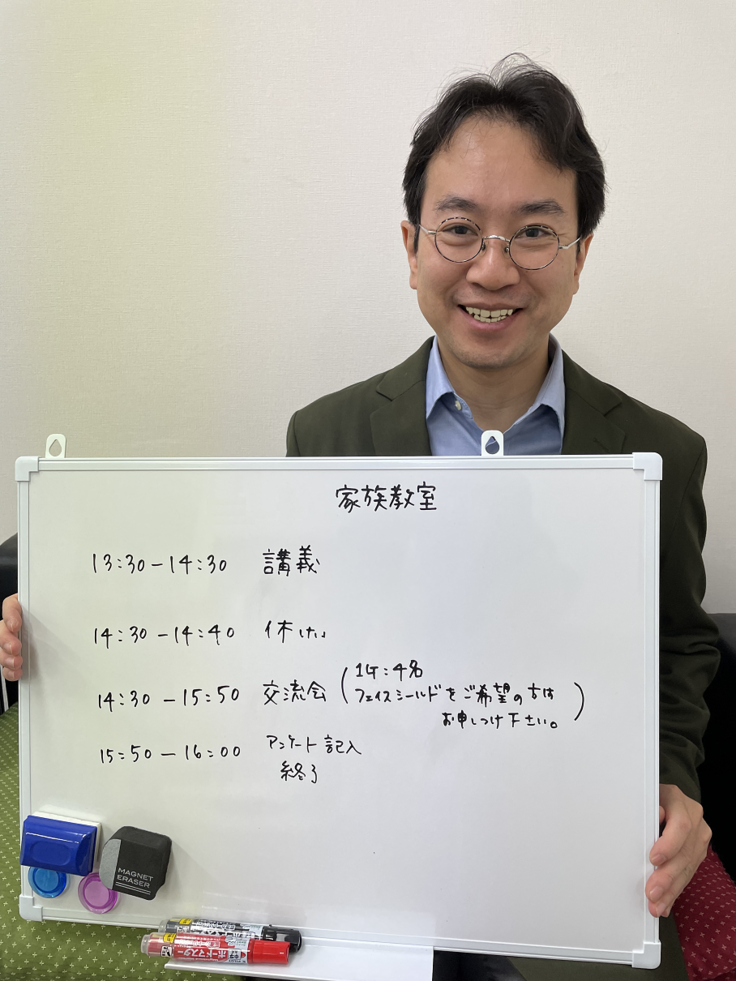 家族教室
13:30-14:30 講義
14:30-14:40 休けい
14:30-15:50 交流会(1G:4名
フェイスシールドをご希望の方は
お申しつけ下さい。)
15:50-16:00 アンケート記入
終了
MAGNET
ERASER
ボードマスター